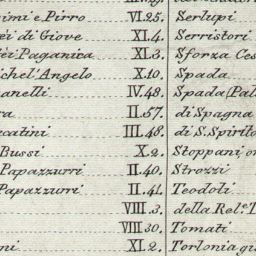 imi e Pirro VI.25. Serlupi
ei di Giove XI.4. Serristori
ei Paganica XI.3. Sforza Ces
ichel' Angelo X.10. Spada
anelli IV.48. Spada (Pal
ra II.57. di Spagna
catini III.48. di S. Spirito
Bussi X.2. Stoppani o
Papazurri II.40. Strozzi
Papazurri II.41. Teodoli
VIII.3. della Rel.e T
VIII.30. Tomati
ni XI.2. Torlonia già